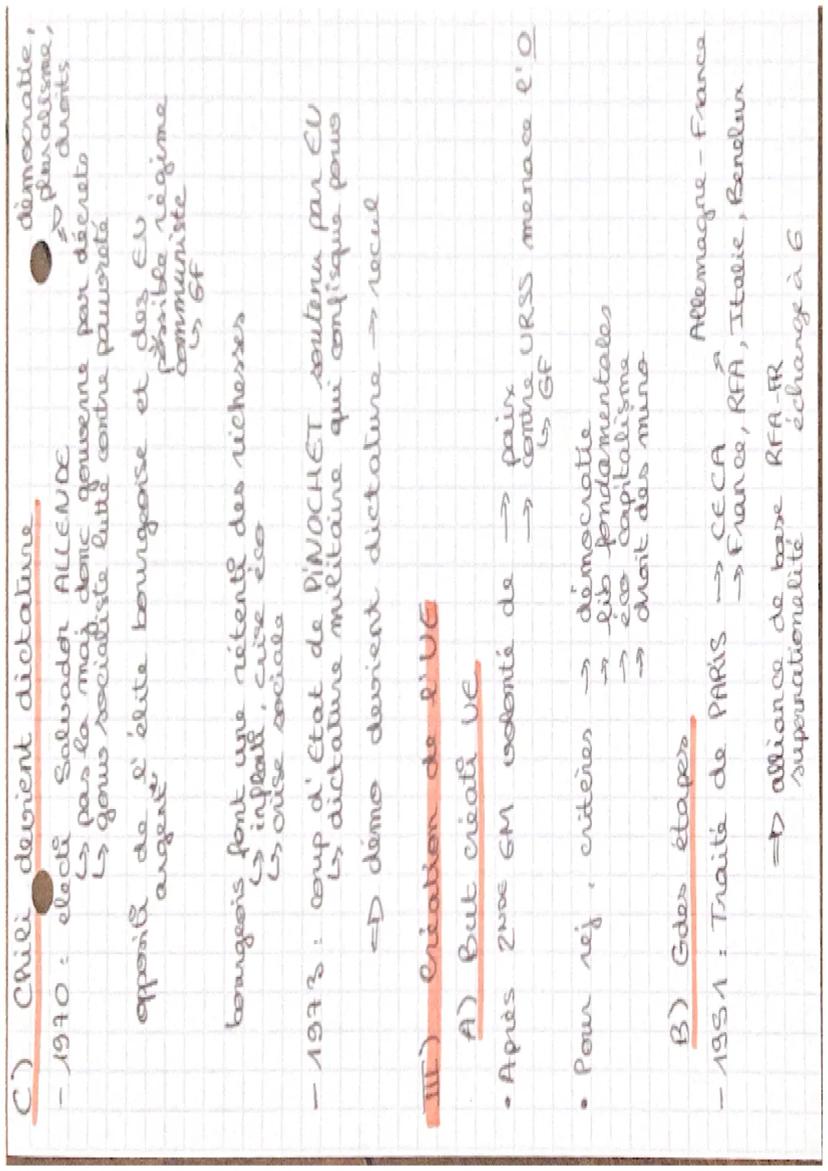 C) Chili devient dictature
démocratie,
⇒ pluralisme,
droits
- 1970 : électi° Salvador ALLENDE
↳ pas la maj donc gouverne par décrets
↳ gouv socialiste lutte contre pauvreté
oppositi° de l'élite bourgeoise et des EU
argent possible régime
communiste
↳ GF
bourgeois font une rétenti° des richesses
↳ inflati°, crise éco
↳ crise sociale
- 1973 : coup d'Etat de PINOCHET soutenu par EU
↳ dictature militaire qui confisque pouvo
⇒ démo devient dictature → recul
III) Création de l'UE
A) But créati° UE
• Après 2NDE GM volonté de → paix
→ contre URSS menace l'O
↳ GF
• Pour rej, critères → démocratie
→ lib fondamentales
→ éco capitalisme
→ droit des mino
B) Gdes étapes
Allemagne - France
- 1951 : Traité de PARIS → CECA
→ France, RFA, Italie, Benelux
⇒ alliance de base RFA-FR
supranationalité échange à 6